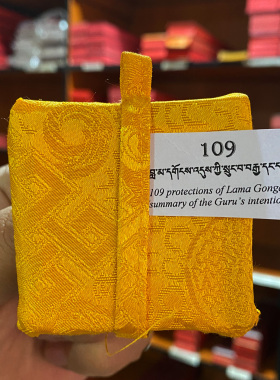 109
བླ་མ་དགོངས་འདུས་ཀྱི་སྲུང་བ་བརྒྱ་དང་
109 protections of Lama Gong
summary of the Guru's intenti